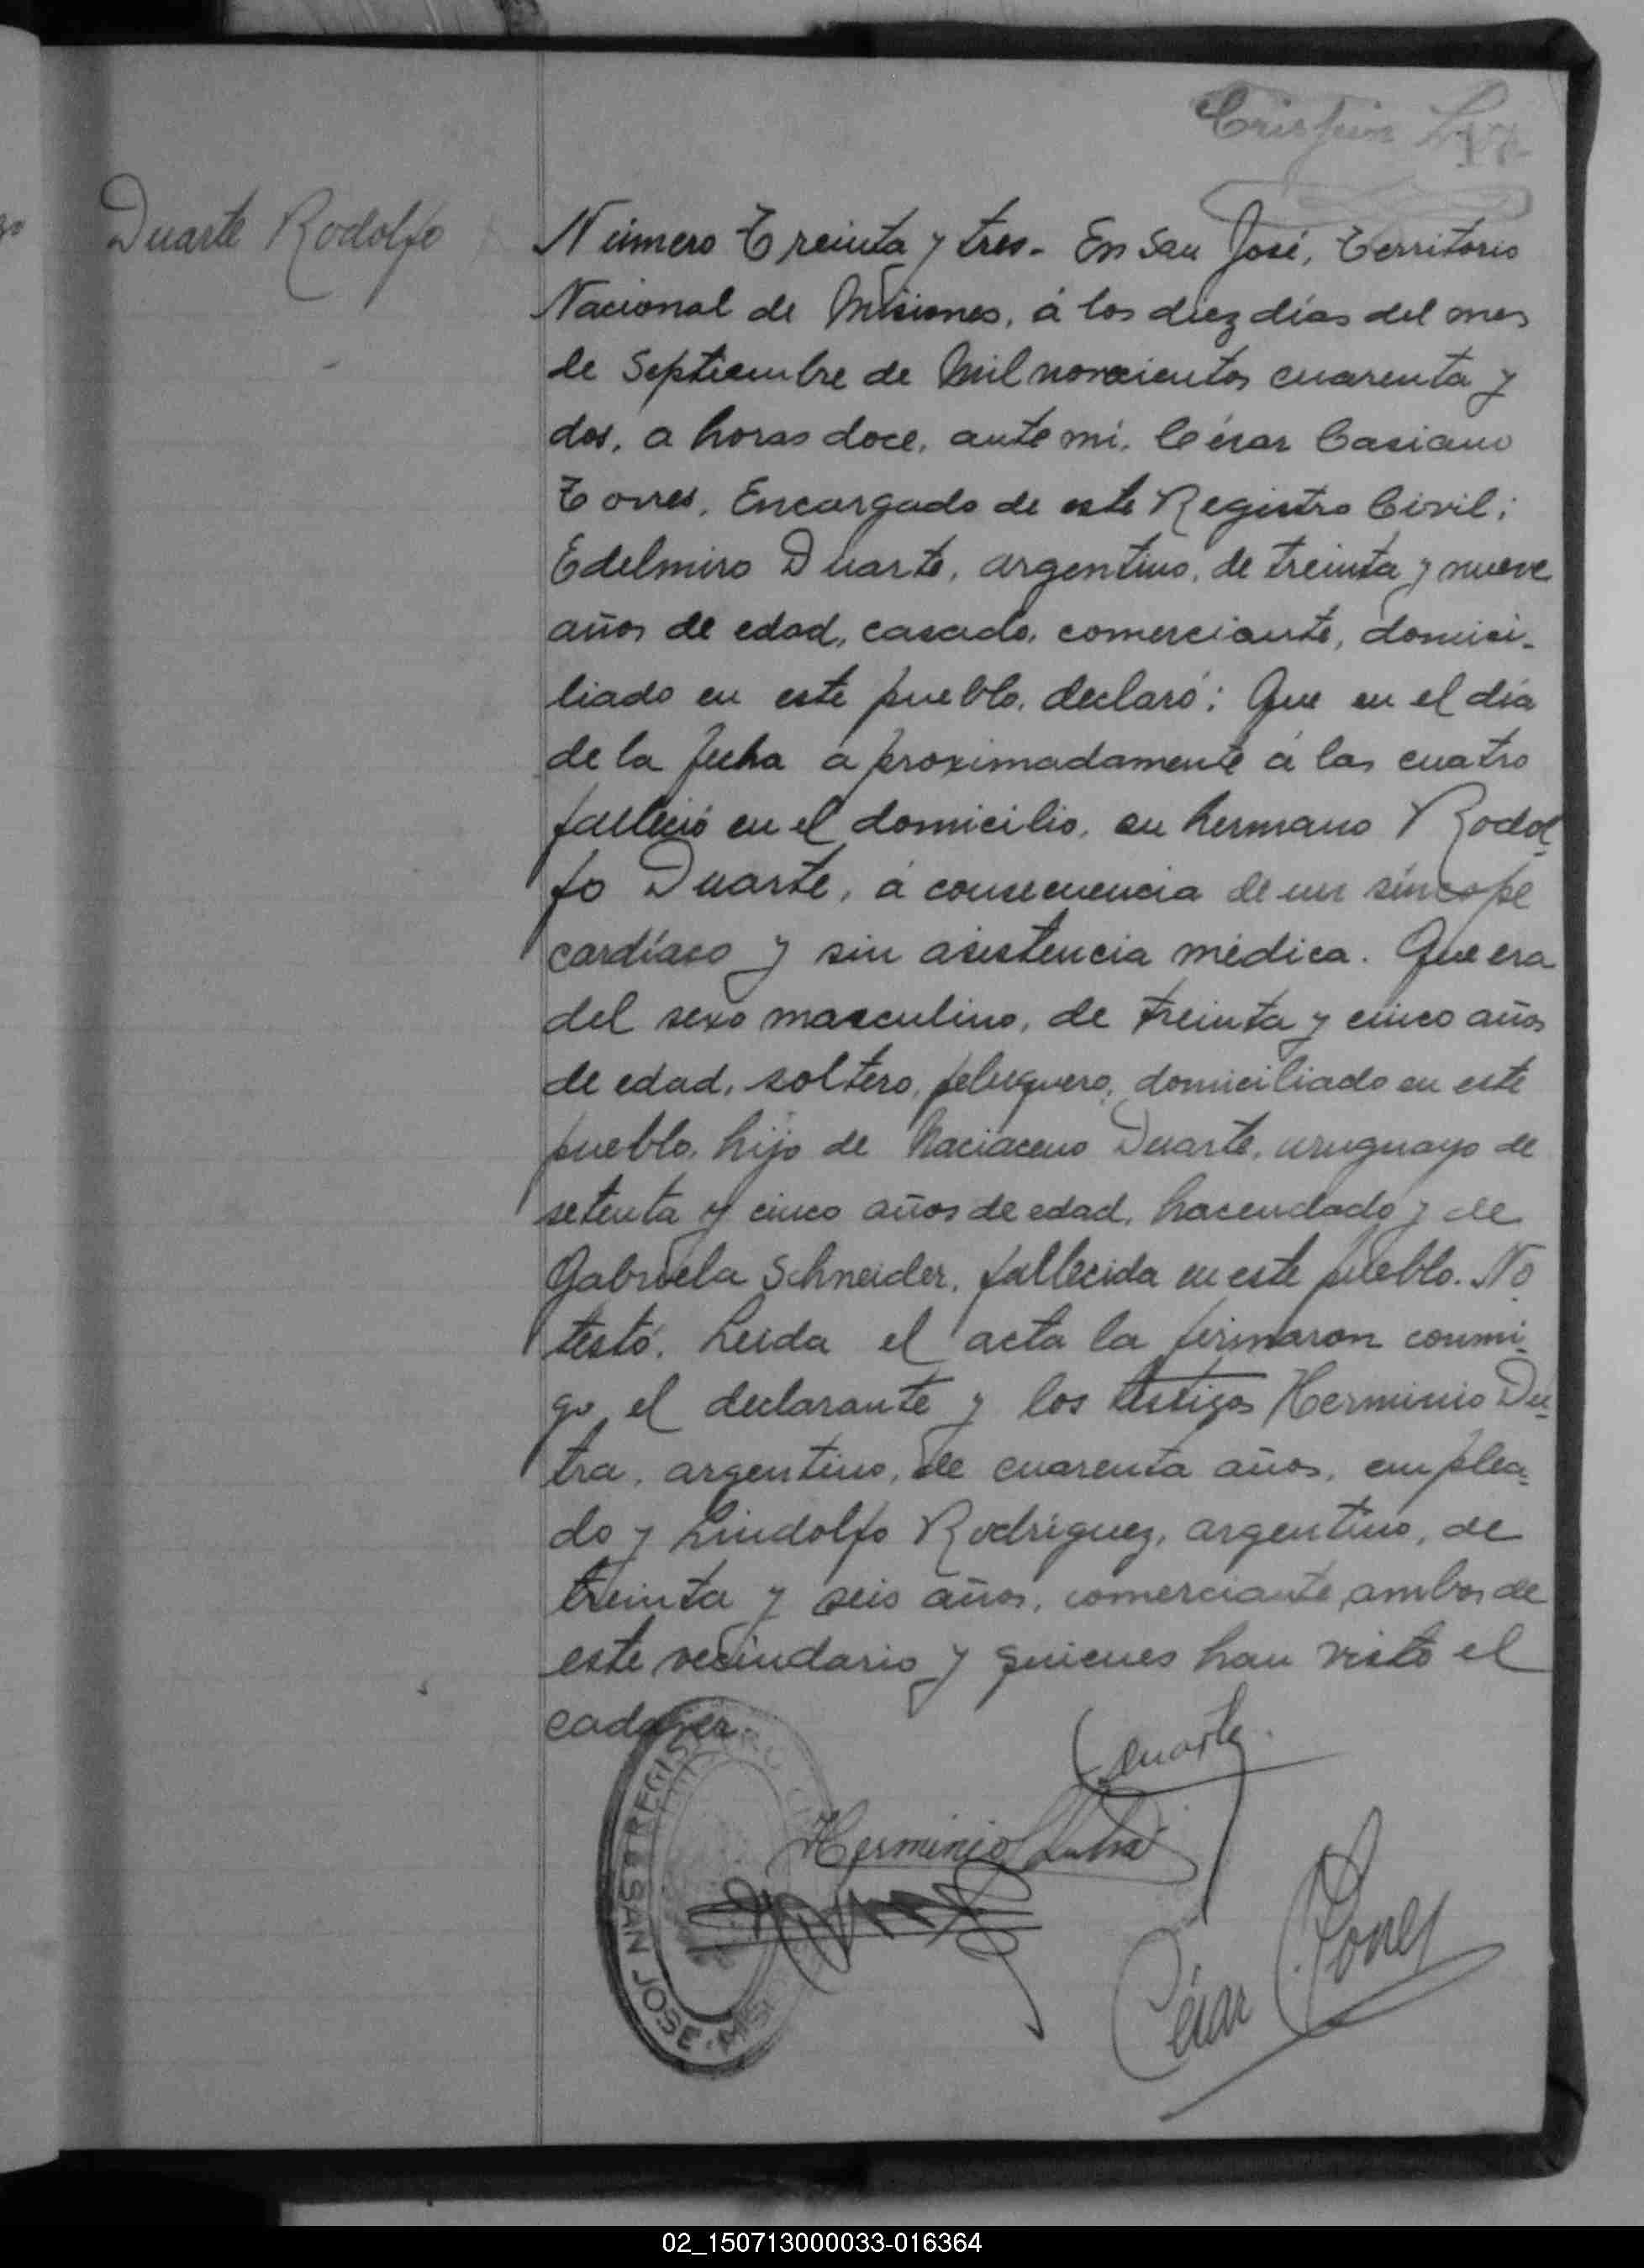 Crispin
17
Duarte Rodolfo
Número Treinta y tres.- En San José, Territorio
Nacional de Misiones, á los diez días del mes
de Septiembre de Mil novecientos cuarenta y
dos, a horas doce, ante mí, César Casiano
Torres, Encargado de este Registro Civil;
Edelmiro Duarte, argentino, de treinta y nueve
años de edad, casado, comerciante, domici-
liado en este pueblo, declaró: Que en el día
de la fecha aproximadamente á las cuatro
falleció en el domicilio, su hermano Rodol-
fo Duarte, á consecuencia de un síncope
cardíaco y sin asistencia médica. Que era
del sexo masculino, de treinta y cinco años
de edad, soltero, peluquero, domiciliado en este
pueblo, hijo de Duarte, uruguayo de
setenta y cinco años de edad, hacendado y de
Gabriela Schneider, fallecida en este pueblo. No
testó. Leída el acta la firmaron conmi-
go el declarante y los testigos Herminio Du-
tra, argentino, de cuarenta años, emplea-
do y Lindolfo Rodríguez, argentino, de
treinta y seis años, comerciante, ambos de
este vecindario y quienes han visto el
cadáver.
EDuarte
Herminio Dutra
César C. Torres
REGISTRO
SAN JOSE - MIS
02_150713000033-016364